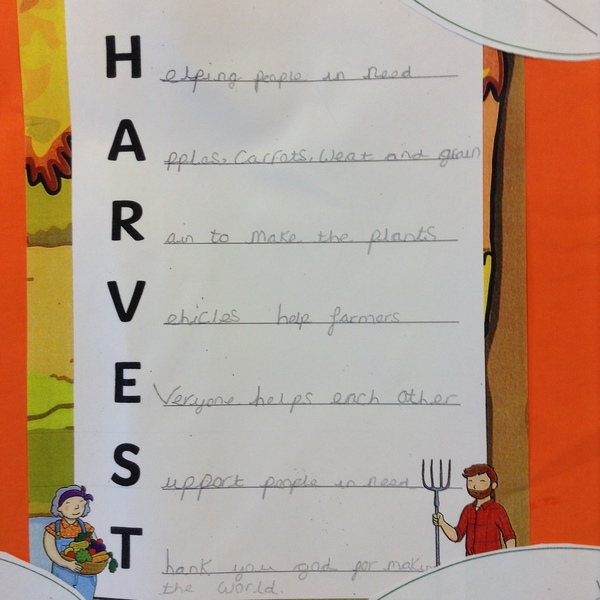 Helping people in need
Apples, Carrots, Weat and grain
Rain to make the plants
Vehicles help farmers
EVeryone helps each other
Support people in need
Thank you god for makin
the world.